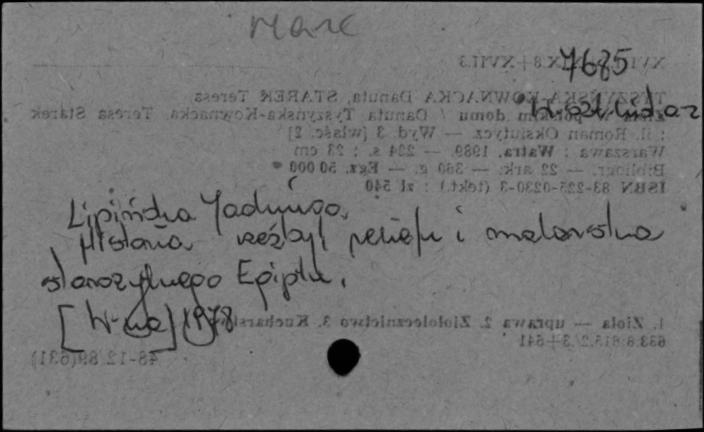 Marc
7685
Lipińska Jadwiga,
Historia rzeźby, reliefu i malarstwa
starożytnego Egiptu.
[W-wa] 1978
XVII.3
TYSZYŃSKA-KOWNACKA Danuta, STAREK Teresa
domu / Danuta Tyszyńska-Kownacka, Teresa Starek
: il. Roman Oksiutycz. — Wyd. 3 [właśc. 2]
Warszawa : Watra, 1989. — 224 s. ; 23 cm
Bibliogr. — 22 ark. — 360 g. — Egz. 50 000
ISBN 83-225-0230-3 (tekt.) : zł 540
1. Zioła — uprawa 2. Ziołolecznictwo 3. Kucharstwo
633.8:615.2/.3+641
48-12.89(631)